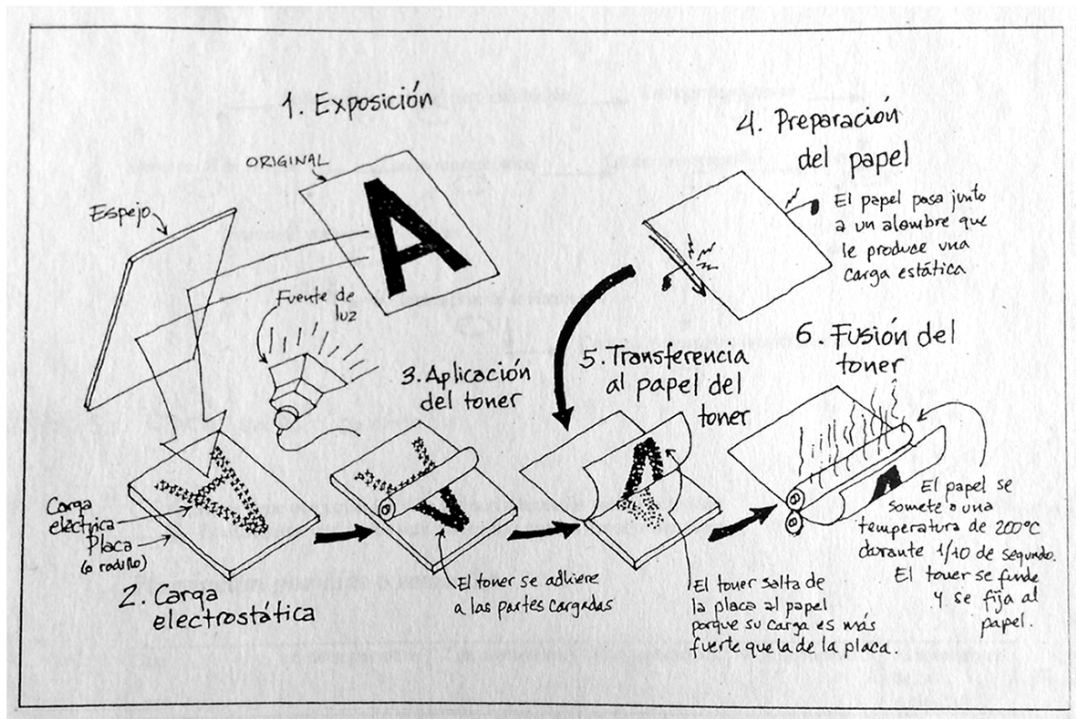 1. Exposición
ORIGINAL
Espejo
A
Fuente de
luz
4. Preparación
del papel
El papel pasa junto
a un alambre que
le produce una
carga estática
3. Aplicación
del toner
5. Transferencia
al papel del
toner
6. Fusión del
toner
Carga
eléctrica
Placa
(o rodillo)
2. Carga
electrostática
El toner se adhiere
a las partes cargadas
El toner salta de
la placa al papel
porque su carga es más
fuerte que la de la placa.
El papel se
somete a una
temperatura de 200°C
durante 1/10 de segundo.
El toner se funde
y se fija al
papel.